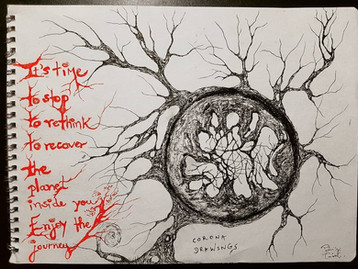 It's time
to stop
to rethink
to recover
the
planet
inside you
Enjoy the
journey
CORONA
DRAWINGS